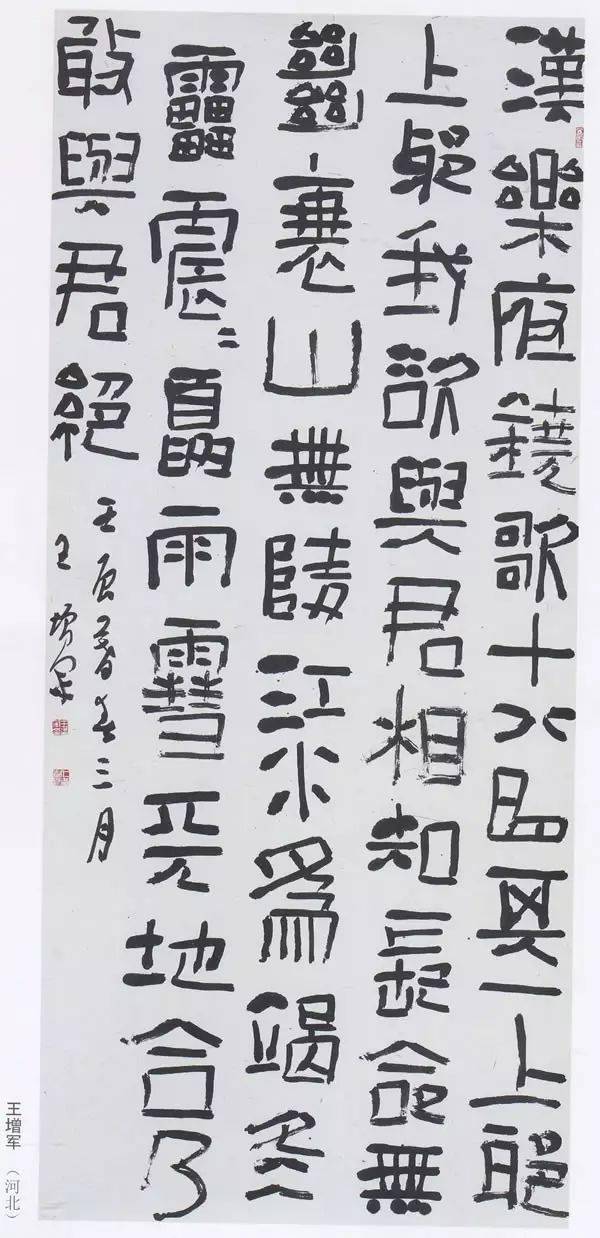 漢樂府鐃歌十八曲其一上邪
上邪我欲與君相知長命無
絕衰山無陵江水爲竭冬
靁震〻夏雨雪天地合乃
敢與君絕
壬辰暮春三月
王增军
王增军（河北）